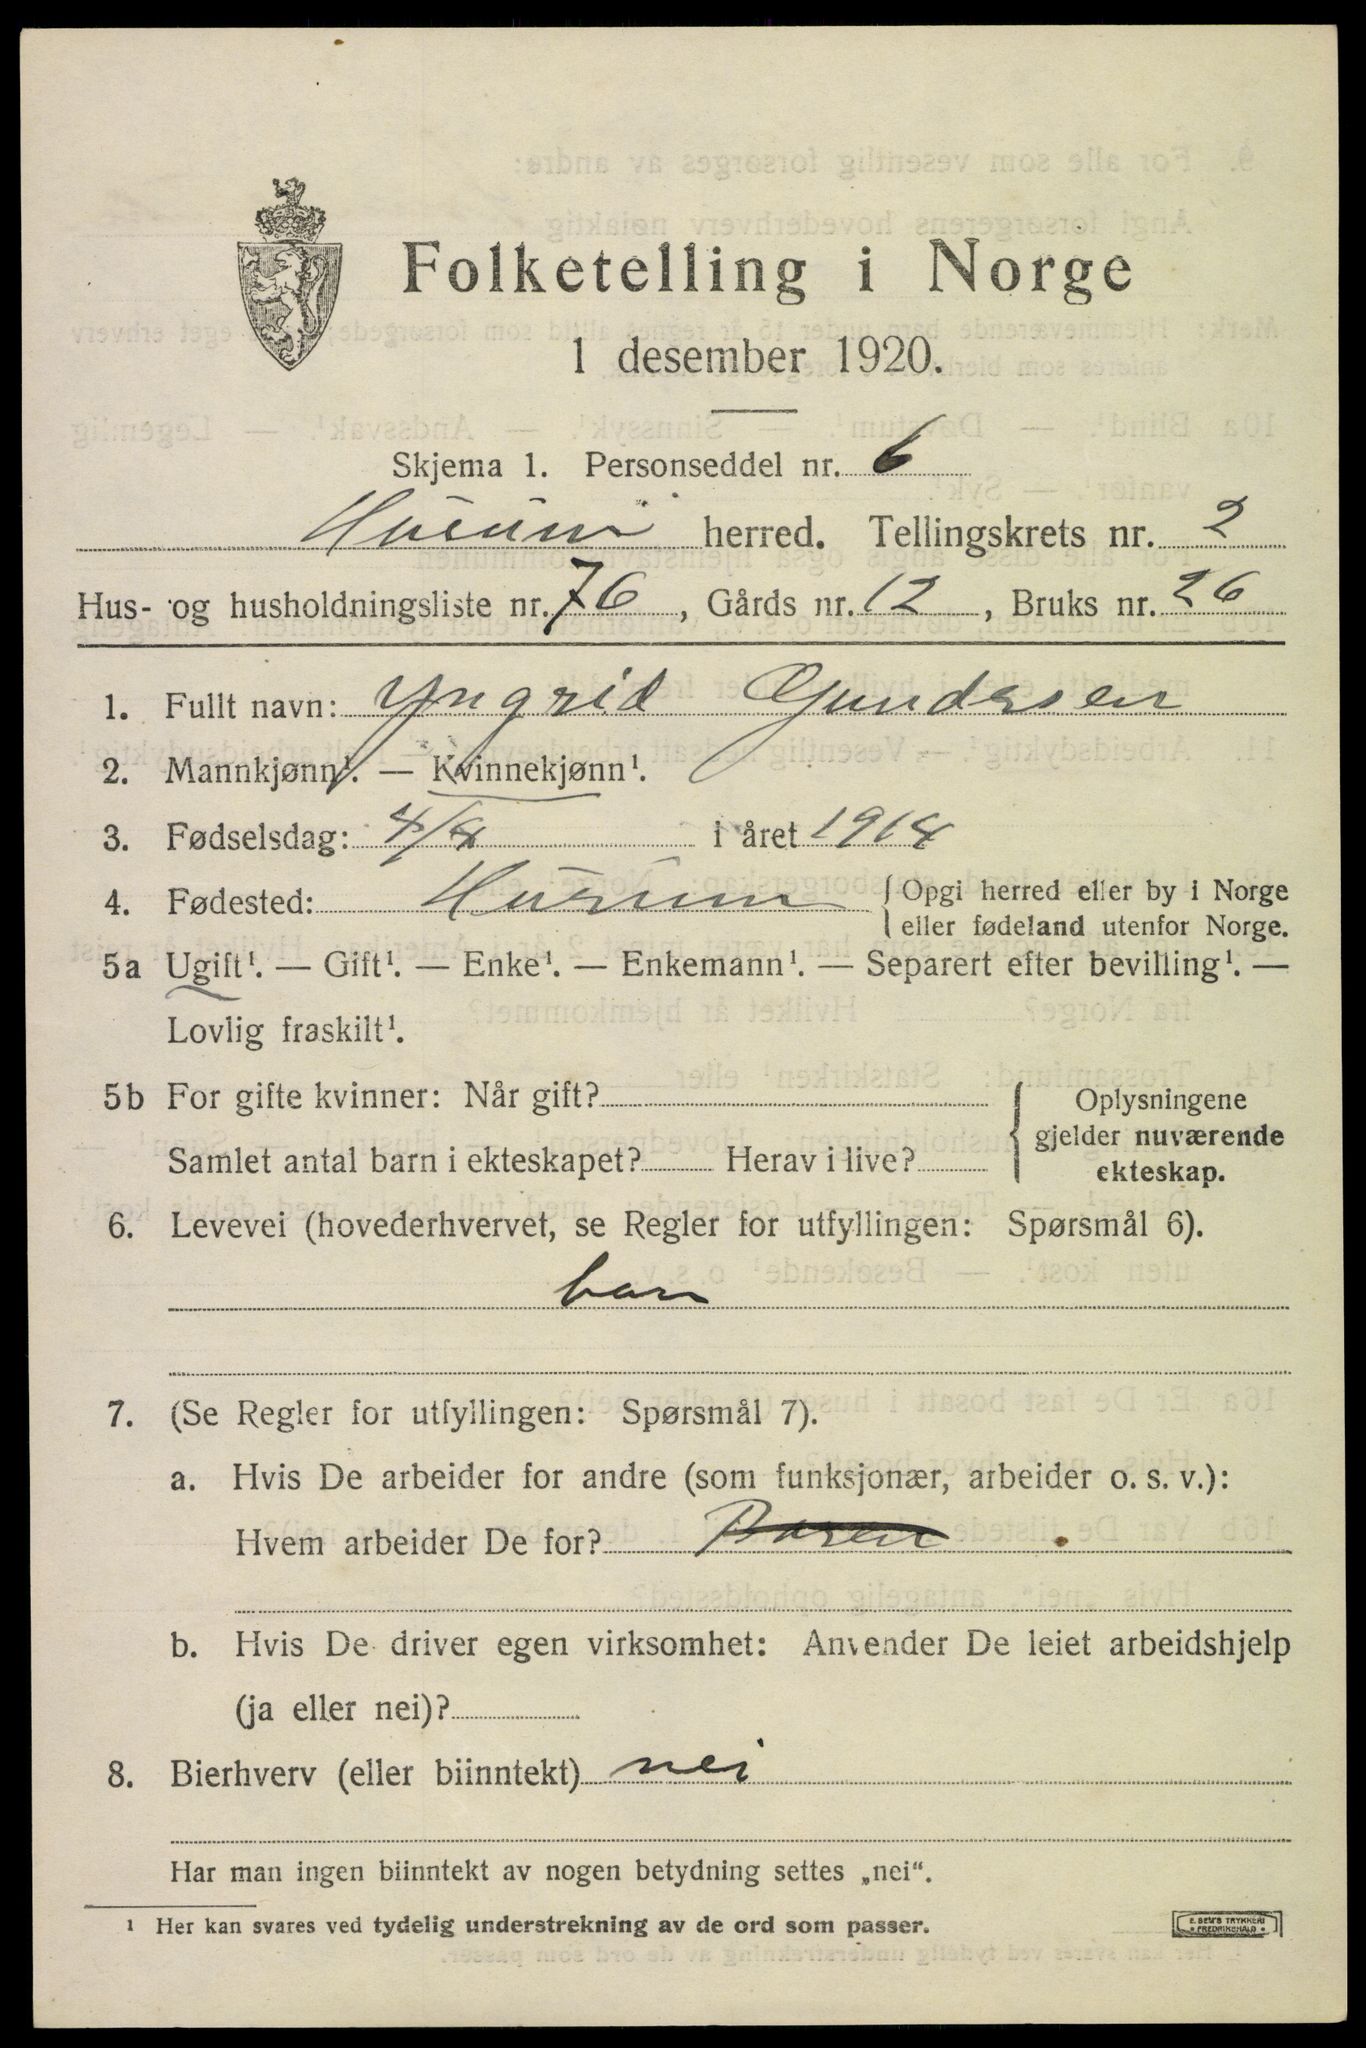 Folketelling i Norge
1 desember 1920.
Skjema 1. Personseddel nr. 6
Hurum herred. Tellingskrets nr. 2
Hus- og husholdningsliste nr. 76, Gårds nr. 12, Bruks nr. 26
1. Fullt navn: Yngrid Gundersen
2. Mannkjønn¹. — Kvinnekjønn¹.
3. Fødselsdag: 4/8 i året 1914
4. Fødested: Hurum { Opgi herred eller by i Norge
eller fødeland utenfor Norge.
5a Ugift¹. — Gift¹. — Enke¹. — Enkemann¹. — Separert efter bevilling¹. —
Lovlig fraskilt¹.
5b For gifte kvinner: Når gift?
Samlet antal barn i ekteskapet? Herav i live?
{ Oplysningene
gjelder nuværende
ekteskap.
6. Levevei (hovederhvervet, se Regler for utfyllingen: Spørsmål 6).
barn
7. (Se Regler for utfyllingen: Spørsmål 7).
a. Hvis De arbeider for andre (som funksjonær, arbeider o. s. v.):
Hvem arbeider De for?
b. Hvis De driver egen virksomhet: Anvender De leiet arbeidshjelp
(ja eller nei)?
8. Bierhverv (eller biinntekt) nei
Har man ingen biinntekt av nogen betydning settes „nei“.
¹ Her kan svares ved tydelig understrekning av de ord som passer.
E. SEM'S TRYKKERI
• FREDRIKSHALD •